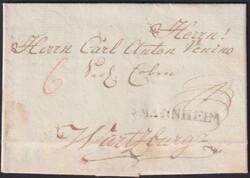 Herrn!
Herrn Carl Anton Venino
6
MANNHEIM
Würtzburg